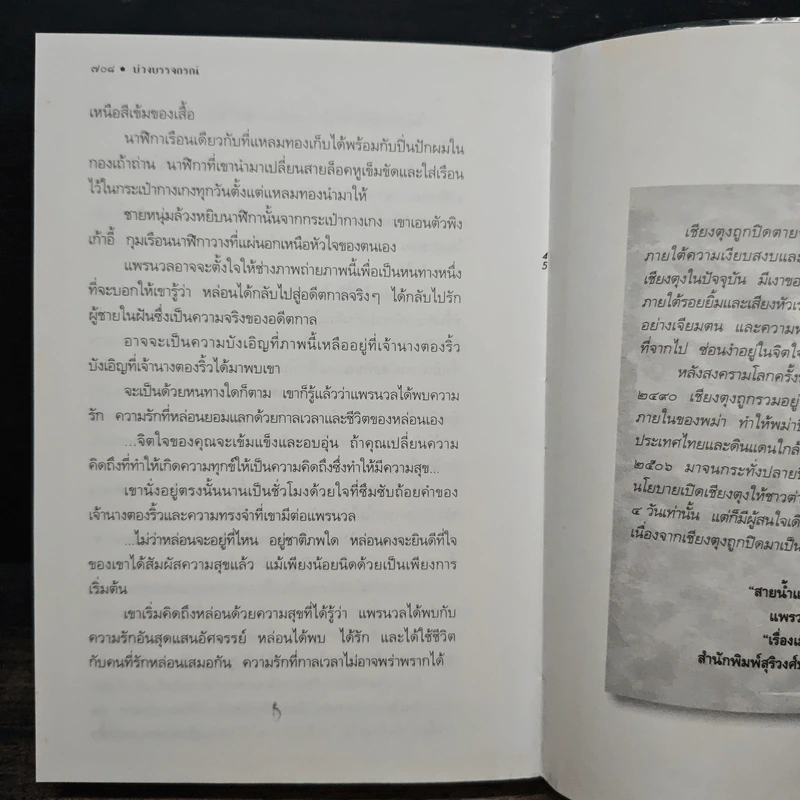 ๗๐๘ • บ่วงบรรจถรณ์
เหนือสีเข้มของเสื้อ
นาฬิกาเรือนเดียวกับที่แหลมทองเก็บได้พร้อมกับปิ่นปักผมใน
กองเถ้าถ่าน นาฬิกาที่เขานำมาเปลี่ยนสายล็อคหูเข็มขัดและใส่เรือน
ไว้ในกระเป๋ากางเกงทุกวันตั้งแต่แหลมทองนำมาให้
ชายหนุ่มล้วงหยิบนาฬิกานั้นจากกระเป๋ากางเกง เขาเอนตัวพิง
เก้าอี้ กุมเรือนนาฬิกาวางที่แผ่นอกเหนือหัวใจของตนเอง
แพรนวลอาจจะตั้งใจให้ช่างภาพถ่ายภาพนี้เพื่อเป็นหนทางหนึ่ง
ที่จะบอกให้เขารู้ว่า หล่อนได้กลับไปสู่อดีตกาลจริงๆ ได้กลับไปรัก
ผู้ชายในฝันซึ่งเป็นความจริงของอดีตกาล
อาจจะเป็นความบังเอิญที่ภาพนี้เหลืออยู่ที่เจ้านางตองริ้ว
บังเอิญที่เจ้านางตองริ้วได้มาพบเขา
จะเป็นด้วยหนทางใดก็ตาม เขาก็รู้แล้วว่าแพรนวลได้พบความ
รัก ความรักที่หล่อนยอมแลกด้วยกาลเวลาและชีวิตของหล่อนเอง
...จิตใจของคุณจะเข้มแข็งและอบอุ่น ถ้าคุณเปลี่ยนความ
คิดถึงที่ทำให้เกิดความทุกข์ให้เป็นความคิดถึงซึ่งทำให้มีความสุข...
เขานั่งอยู่ตรงนั้นนานเป็นชั่วโมงด้วยใจที่ซึมซับถ้อยคำของ
เจ้านางตองริ้วและความทรงจำที่เขามีต่อแพรนวล
...ไม่ว่าหล่อนจะอยู่ที่ไหน อยู่ชาติภพใด หล่อนคงจะยินดีที่ใจ
ของเขาได้สัมผัสความสุขแล้ว แม้เพียงน้อยนิดด้วยเป็นเพียงการ
เริ่มต้น
เขาเริ่มคิดถึงหล่อนด้วยความสุขที่ได้รู้ว่า แพรนวลได้พบกับ
ความรักอันสุดแสนอัศจรรย์ หล่อนได้พบ ได้รัก และได้ใช้ชีวิต
กับคนที่รักหล่อนเสมอกัน ความรักที่กาลเวลาไม่อาจพร่าพรากได้
45
เชียงตุงถูกปิดตาย
ภายใต้ความเงียบสงบและ
เชียงตุงในปัจจุบัน มีเงาของ
ภายใต้รอยยิ้มและเสียงหัวเร
อย่างเจียมตน และความ
ที่จากไป ซ่อนงำอยู่ในจิตใจ
หลังสงครามโลกครั้งที่
๒๔๙๐ เชียงตุงถูกรวมอยู่
ภายในของพม่า ทำให้พม่า
ประเทศไทยและดินแดนใกล้
๒๕๐๖ มาจนกระทั่งปลายปี
นโยบายเปิดเชียงตุงให้ชาวต่า
๔ วันเท่านั้น แต่ก็มีผู้สนใจเดิ
เนื่องจากเชียงตุงถูกปิดมาเป็น
"สายน้ำแ
แพรว
"เรื่องเ
สำนักพิมพ์สุริวงศ์